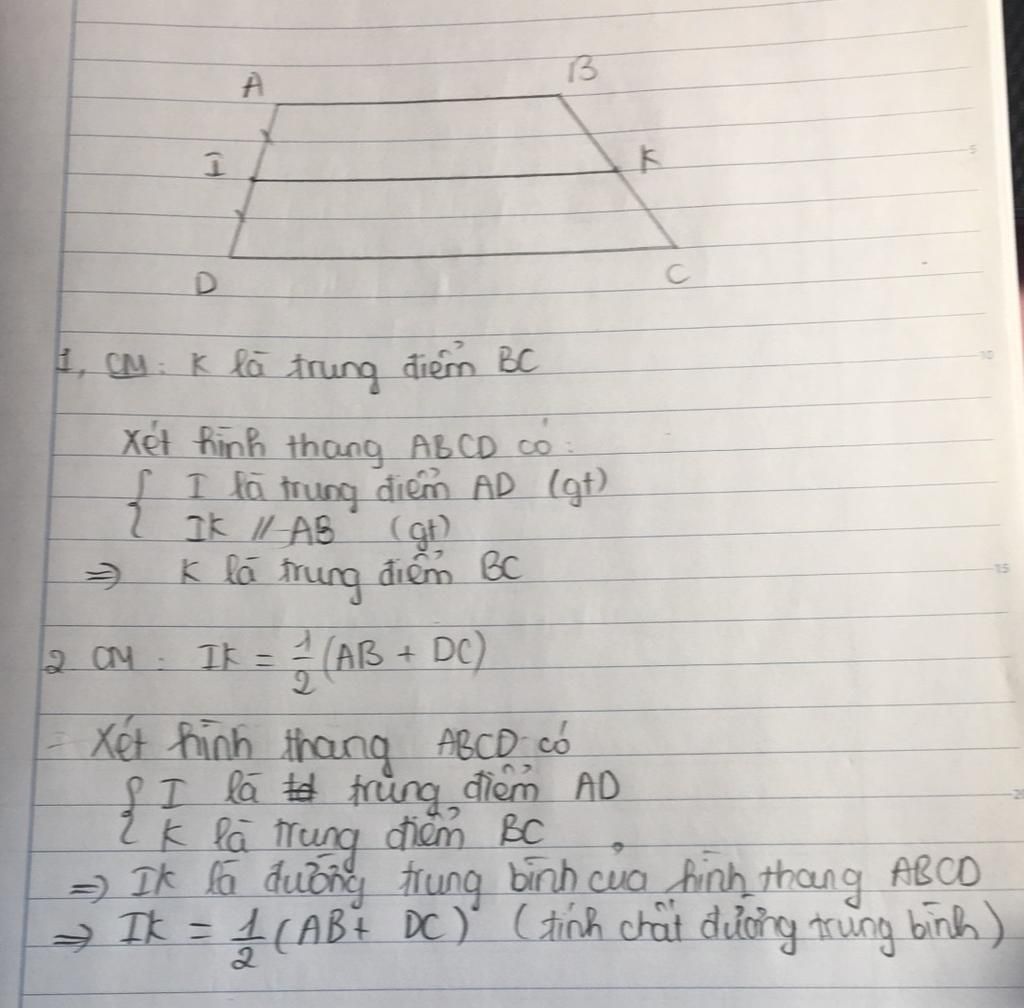 A B
I K
D C
1, CM: K là trung điểm BC
Xét hình thang ABCD có:
{ I là trung điểm AD (gt)
IK // AB (gt)
=> K là trung điểm BC
2 CM: IK = 1/2 (AB + DC)
- Xét hình thang ABCD có
{ I là trung điểm AD
K là trung điểm BC
=> IK là đường trung bình của hình thang ABCD
=> IK = 1/2 (AB + DC) (tính chất đường trung bình)
5
10
15